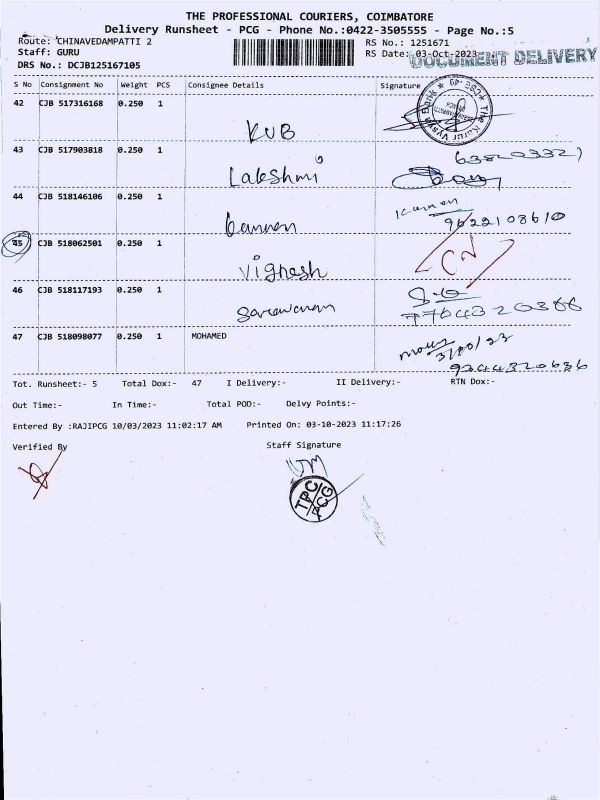 THE PROFESSIONAL COURIERS, COIMBATORE
Delivery Runsheet - PCG - Phone No.:0422-3505555 - Page No.:5
Route: CHINAVEDAMPATTI 2 RS No.: 1251671
Staff: GURU RS Date: 03-Oct-2023
DOCUMENT DELIVERY
DRS No.: DCJB125167105
S No Consignment No Weight PCS Consignee Details Signature
42 CJB 517316168 0.250 1
KVB
43 CJB 517903818 0.250 1
Lakshmi
44 CJB 518146106 0.250 1 Kannan
kannan 9622108610
45 CJB 518062501 0.250 1
Vighesh
46 CJB 518117193 0.250 1
Saravanan
47 CJB 518098077 0.250 1 MOHAMED
Tot. Runsheet:- 5 Total Dox:- 47 I Delivery:- II Delivery:- RTN Dox:-
Out Time:- In Time:- Total POD:- Delvy Points:-
Entered By :RAJIPCG 10/03/2023 11:02:17 AM Printed On: 03-10-2023 11:17:26
Verified By Staff Signature
TPC
PCG